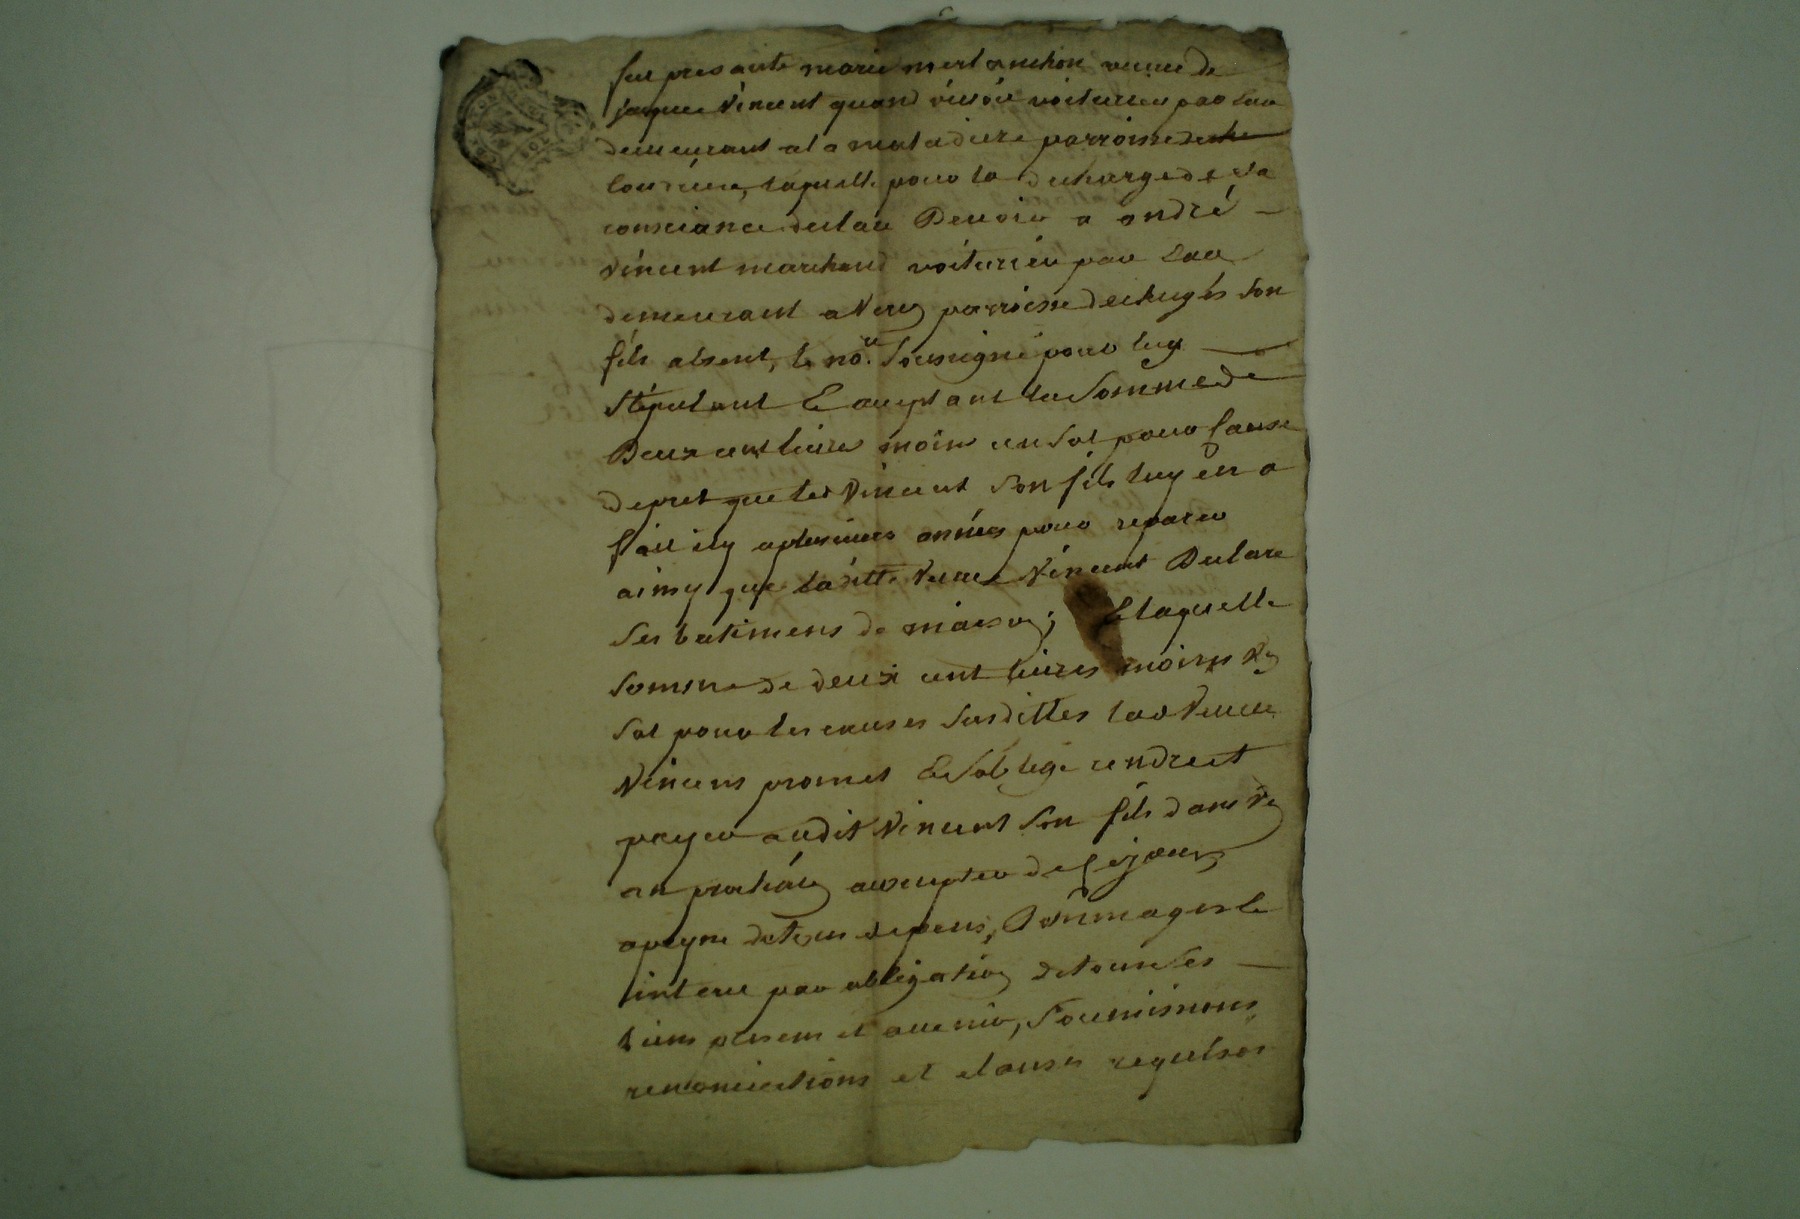 fut presante marie merlanchon veuve de
jaque Vincent quand vivoit voiturier par eau
demeurant a la maladiere parroisse de
laquelle pour la decharge de sa
consciance declare Devoir a andré
Vincent marchand voiturier par eau
demeurant a Very parroisse de son
fils absent, le no.re soussigné pour luy
stipulant & aceptant la somme de
Deux cent livres moins un sol pour cause
de pret que led Vincent son fils luy en a
fait il y a plusieurs années pour reparer
ainsy que laditte veuve Vincent Declare
ses batimens de maison; & laquelle
somme de deux cent livres moins un
sol pour les causes susdittes lad Veuve
Vincent promet & s'oblige rendre et
payer audit Vincent son fils dans un
an prochain a compter de ce jour,
a peyne de tous depens, Dommages &
interet par obligation de tous ses
biens presens et avenir, soumissions,
renonciations et clauses requises